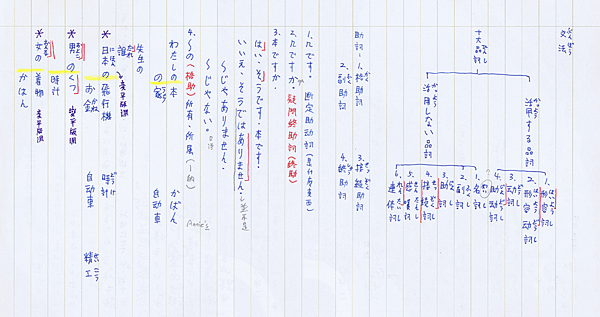 文法
十大品詞
活用する品詞
1. 形容詞
2. 形容動詞
3. 動詞
4. 助動詞
活用しない品詞
1. 名詞
2. 副詞
3. 助詞
4. 接続詞
5. 感嘆詞
6. 連体詞
助詞-1. 格助詞
2. 副助詞
3. 接続助詞
4. 終助詞
1. たです。 断定助動詞
2. たですか。疑問終助詞(終助)
3. 本ですか。
はい、そうです。本です。
いいえ、そうではありません。
～じゃありません。
～じゃない。
4. ～の(格助)所有、所属(的)
わたしの本 かばん
の家 自動車
Annie's
先生の
誰
* 日本の飛行機 時計 精工
お金 自動車
* 男のくつ
時計
* 女の着物
かばん